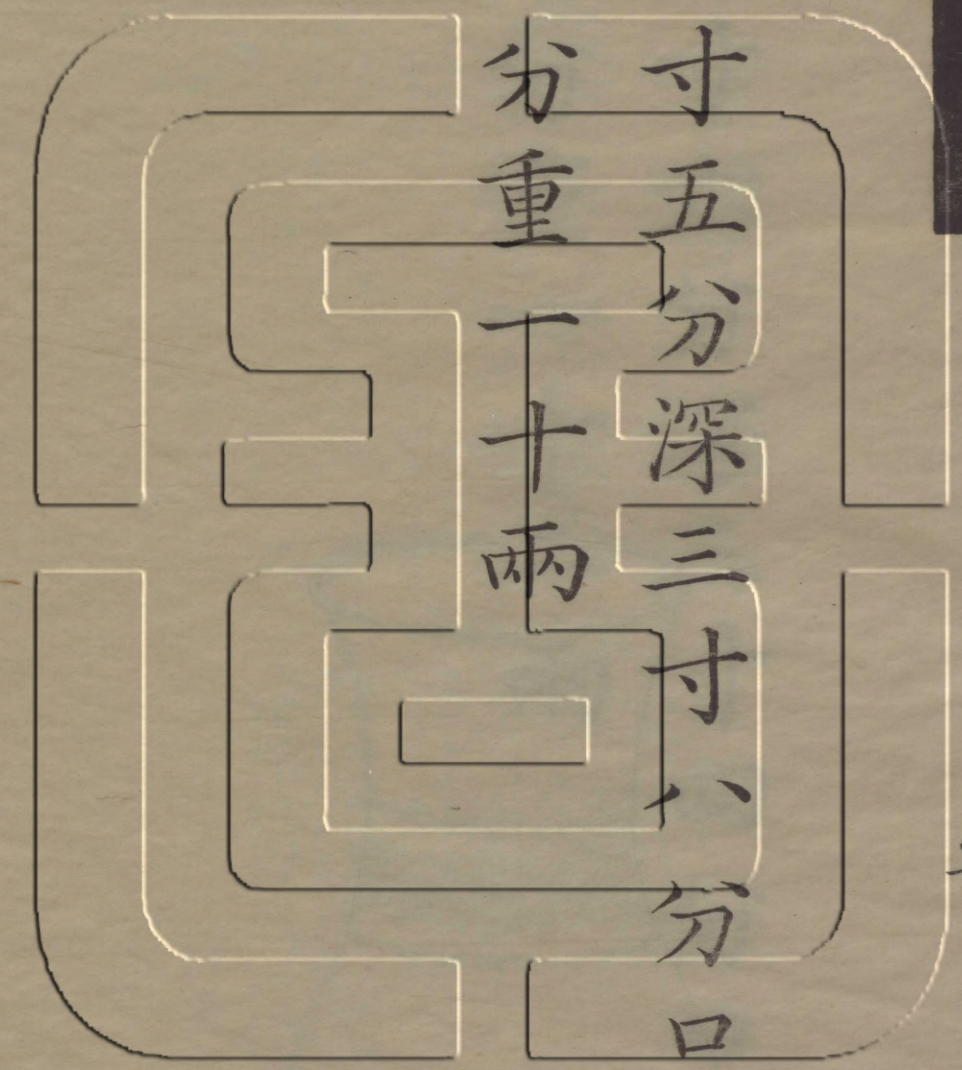 寸五分深三寸八分口
分重一十兩